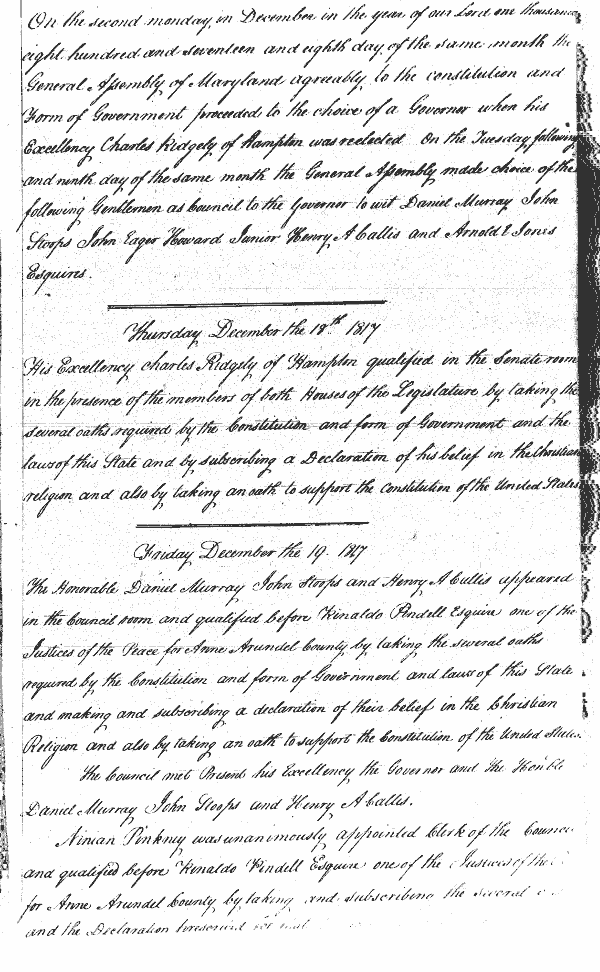 On the second monday in December in the year of our Lord one thousand
eight hundred and seventeen and eighth day of the same month the
General Assembly of Maryland agreeably to the constitution and
Form of Government proceeded to the choice of a Governor when his
Excellency Charles Ridgely of Hampton was reelected On the Tuesday following
and ninth day of the same month the General Assembly made choice of the
following Gentlemen as Council to the Governor to wit Daniel Murray John
Stoops John Eager Howard Junior Henry A Callis and Arnold E Jones
Esquires.
Thursday December the 18th 1817
His Excellency Charles Ridgely of Hampton qualified in the Senate room
in the presence of the members of both Houses of the Legislature by taking the
several oaths required by the Constitution and form of Government and the
laws of this State and by subscribing a Declaration of his belief in the Christian
religion and also by taking an oath to support the Constitution of the United States
Friday December the 19. 1817
The Honorable Daniel Murray John Stoops and Henry A Callis appeared
in the Council room and qualified before Rinaldo Pindell Esquire one of the
Justices of the Peace for Anne Arundel County by taking the several oaths
required by the Constitution and form of Government and laws of this State
and making and subscribing a declaration of their belief in the Christian
Religion and also by taking an oath to support the Constitution of the United States.
The Council met Present his Excellency the Governor and the Honble
Daniel Murray John Stoops and Henry A Callis.
Ninian Pinkney was unanimously appointed Clerk of the Council
and qualified before Rinaldo Pindell Esquire one of the Justices of the
for Anne Arundel County by taking and subscribing the several
and the Declaration prescribed